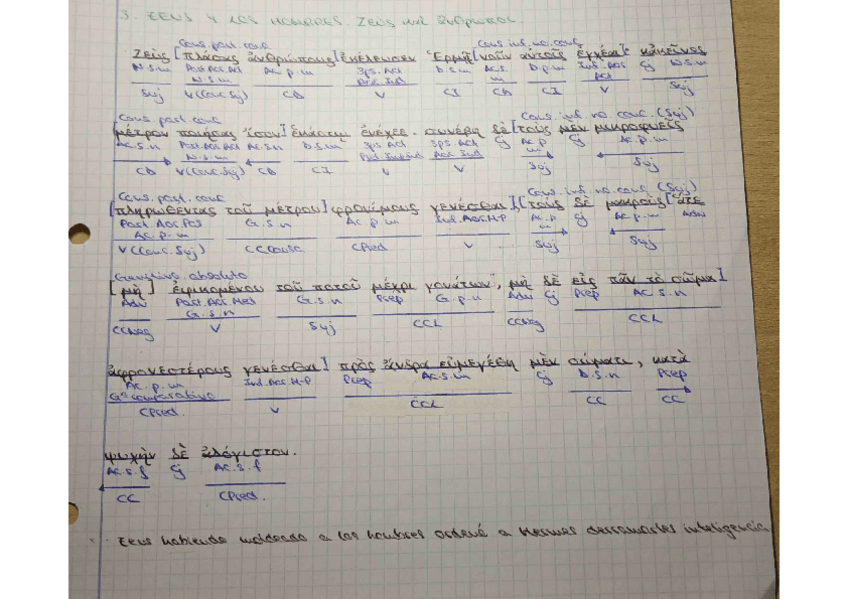 3. ZEUS Y LOS HOMBRES. Ζεὺς καὶ ἄνθρωποι.
Cons. part. conc. Cons. inf. no conc.
Ζεὺς [πλάσας ἀνθρώπους] ἐκέλευσεν Ἑρμῆ [νοῦν αὐτοῖς ἐγχέαι. κἀκεῖνος
N.s.m Part. Aor. Act Ac. p. m 3ps. Act D.s.m Ac.s. D.p.m Inf. Aos Cj N.s.m
N.s.m Aor. Ind m Act
Suj V (Conc. Suj) CD V CI CD CI V Suj
Cons. part. conc Cons. inf. no conc. (Suj)
[μέτρον ποιήσας ἴσον] ἑκάστῳ ἐνέχεε. συνέβη δὲ [τοὺς μὲν μικροφυεῖς
Ac.s.n Part. Aos. Act Ac.s.n D.s.m 3ps. Act 3ps. Act Cj Ac.p Cj Ac.p.m
N.s.m Aos. Ind m
CD V (Conc. Suj) CD CI V V Suj Suj
Cons. part. conc Cons. inf. no conc. (Suj)
[πληρωθέντας τοῦ μέτρου] φρονίμους γενέσθαι], [τοὺς δὲ μακροὺς [ἅτε
Part. Aos. Pas G.s.n Ac.p.m Inf. Aos. M-P Ac.p Cj Ac.p.m Adv
Ac.p.m m
V (Conc. Suj) CPred V Suj Suj
Genitivo absoluto
[μὴ] ἐφικομένου τοῦ ποτοῦ μέχρι γονάτων, μὴ δὲ εἰς πᾶν τὸ σῶμα]
Adv Part. Aos. Med G.s.n Prep G.p.n Adv Cj Prep Ac.s.n
G.s.n
CCNeg V Suj CCL CCNeg CCL
ἀφρονεστέρους γενέσθαι] πρὸς ἄνδρα εὐμεγέθη μὲν σώματι, κατὰ
Ac.p.m Inf. Aos. M-P Prep Ac.s.m Cj D.s.n Prep
Gº comparativo
CPred. V CCL CC CC
ψυχὴν δὲ ἀλόγιστον.
Ac.s.f Cj Ac.s.f
CC CPred.
Zeus habiendo moldeado a los hombres ordenó a Hermes inteligencia